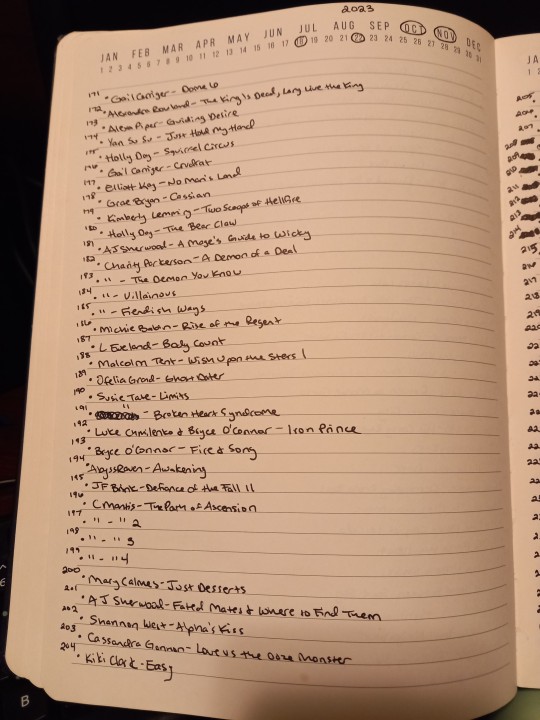 2023
JAN FEB MAR APR MAY JUN JUL AUG SEP OCT NOV DEC
1 2 3 4 5 6 7 8 9 10 11 12 13 14 15 16 17 18 19 20 21 22 23 24 25 26 27 28 29 30 31
171 • Gail Carriger - Dome 6
172 • Alexandra Rowland - The King is Dead, Long Live the King
173 • Alexa Piper - Guiding Desire
174 • Yan Su Su - Just Hold My Hand
175 • Holly Day - Squirrel Circus
176 • Gail Carriger - Crudrat
177 • Elliott Kay - No Man's Land
178 • Grae Bryan - Cassian
179 • Kimberly Lemming - Two Scoops of Hellfire
180 • Holly Day - The Bear Claw
181 • AJ Sherwood - A Mage's Guide to Wicky
182 • Charity Parkerson - A Demon of a Deal
183 • " - The Demon You Know
184 • " - Villainous
185 • " - Fiendish Ways
186 • Michie - Rise of the Regent
187 • L Eveland - Body Count
188 • Malcolm Tent - Wish Upon the Stars 1
189 • Ofelia Grand - Ghost Dater
190 • Susie Tate - Limits
191 • " - Broken Heart Syndrome
192 • Luke Chmilenko & Bryce O'Connor - Iron Prince
193
194 • Bryce O'Connor - Fire & Song
• AbyssRaven - Awakening
195 • JF Brink - Defiance of the Fall 11
196 • C Mantis - The Path of Ascension
197 • " - " 2
198 • " - " 3
199 • " - " 4
200 • Mary Calmes - Just Desserts
201 • AJ Sherwood - Fated Mates & Where to Find Them
202 • Shannon West - Alpha's Kiss
203 • Cassandra Gannon - Love vs the Ooze Monster
204 • Kiki Clark - Easy
JA
1 2
205
206
207
208
209
210
211
212
213
214
215
216
217
218
219
220
B